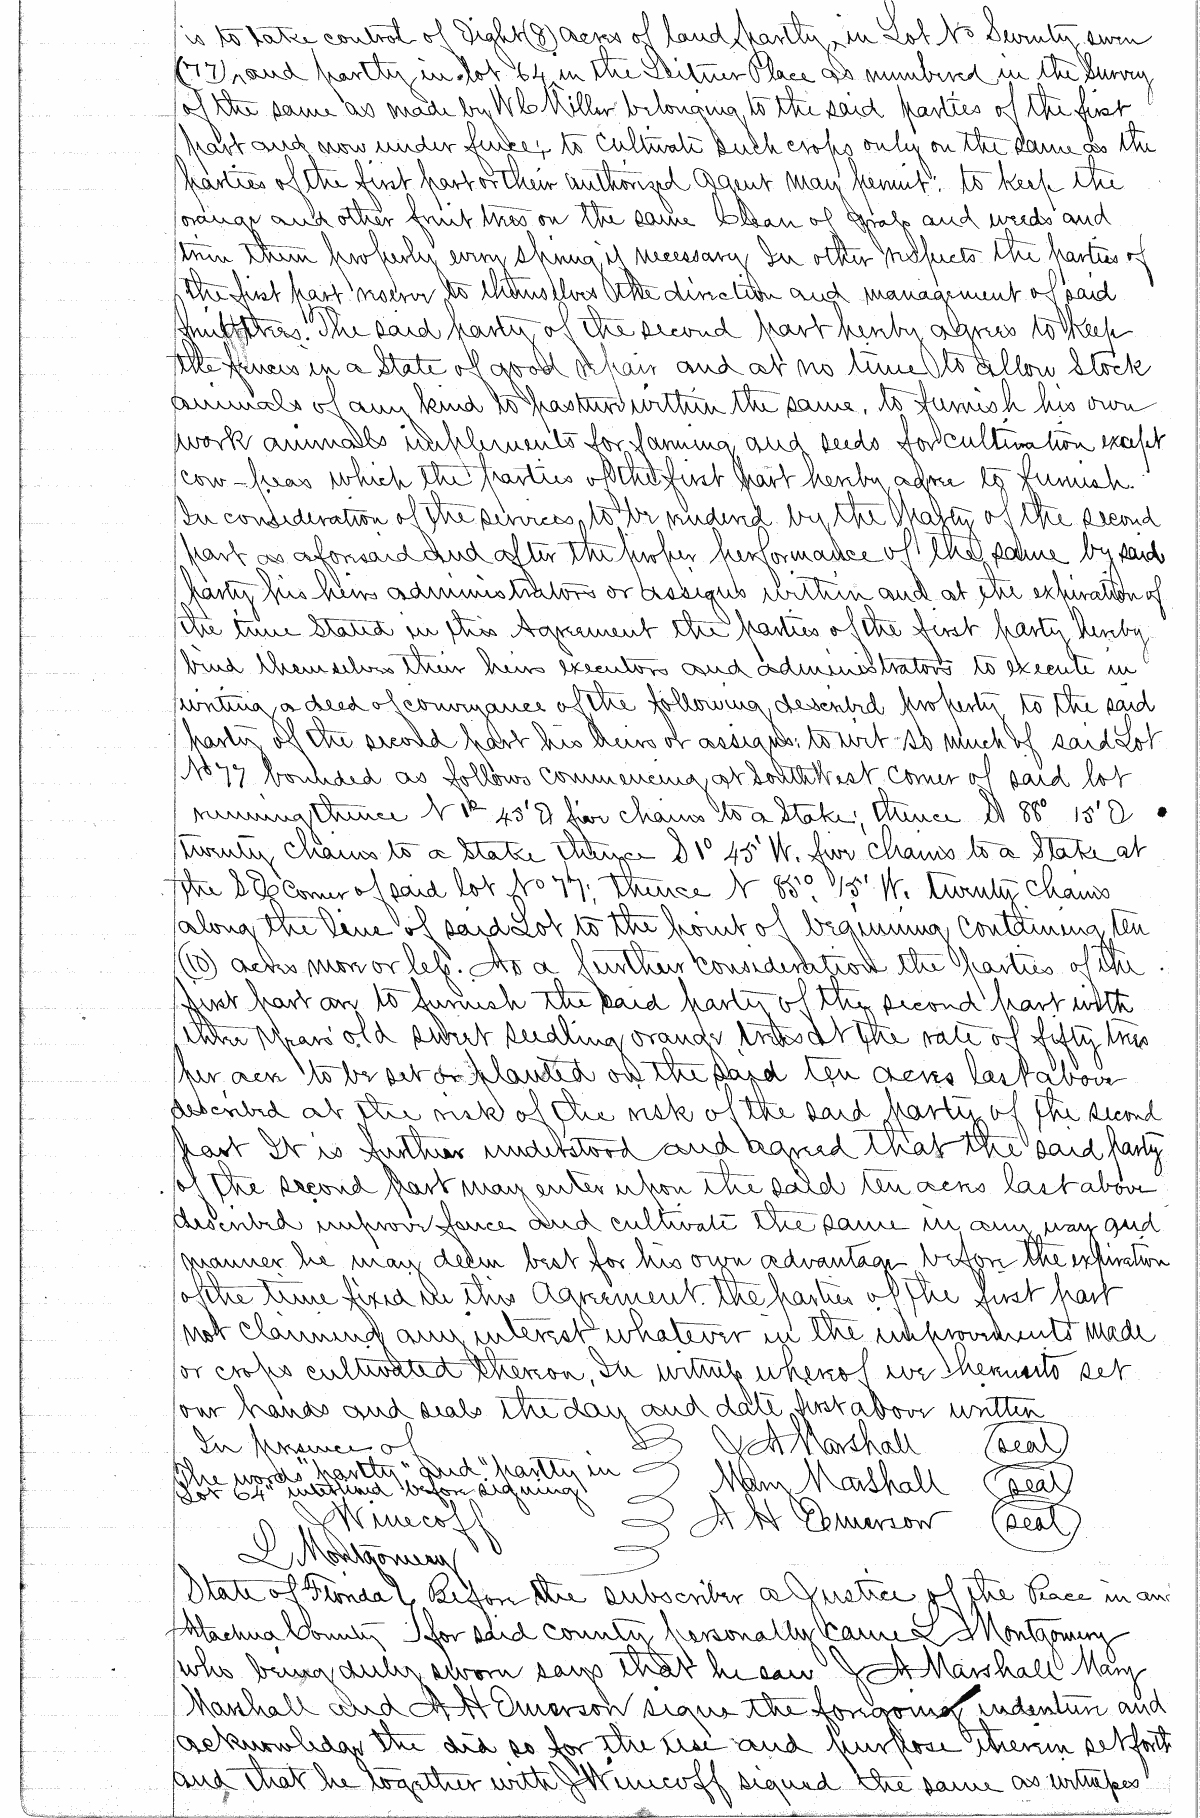 is to take control of Eight (8) acres of land partly in Lot No Seventy seven
(77), and partly in lot 64 in the Leitner Place as numbered in the Survey
of the same as made by W C Miller belonging to the said parties of the first
part and now under fence; to cultivate such crops only on the same as the
parties of the first part or their authorized agent may permit: to keep the
orange and other fruit trees on the same clean of grass and weeds and
trim them properly every spring if necessary In other respects the parties of
the first part reserve to themselves the direction and management of said
fruit trees. The said party of the second part hereby agrees to keep
the fences in a state of good repair and at no time to allow Stock
animals of any kind to pasture within the same, to furnish his own
work animals implements for farming and seeds for cultivation except
cow-peas which the parties of the first part hereby agree to furnish.
In consideration of the services to be rendered by the Party of the second
part as aforesaid and after the proper performance of the same by said
party his heirs administrators or assigns within and at the expiration of
the time stated in this Agreement the parties of the first party hereby
bind themselves their heirs executors and administrators to execute in
writing a deed of conveyance of the following described property to the said
party of the second part his heirs or assigns; to wit so much of said Lot
No 77 bounded as follows commencing at South West corner of said lot
running thence N 1° 45' E five chains to a Stake; thence S 88° 15' E
twenty chains to a stake thence S 1° 45' W. five chains to a Stake at
the S E corner of said lot No 77; thence N 85° 15' W. twenty chains
along the line of said Lot to the point of beginning containing ten
(10) acres more or less. As a further consideration the parties of the
first part are to furnish the said party of the second part with
three years old sweet seedling orange trees at the rate of fifty trees
per acre to be set or planted on the said ten acres last above
described at the risk of the risk of the said party of the second
part It is further understood and agreed that the said party
of the second part may enter upon the said ten acres last above
described improve fence and cultivate the same in any way and
manner he may deem best for his own advantage before the expiration
of the time fixed in this Agreement. the parties of the first part
not claiming any interest whatever in the improvements made
or crops cultivated thereon, In witness whereof we hereunto set
our hands and seals the day and date first above written
In presence of J A Marshall (seal)
The words "partly" and "partly in
Lot 64" interlined before signing Mary Marshall (seal)
J Winecoff A H Emerson (seal)
L Montgomery
State of Florida } Before the subscriber a Justice of the Peace in an
Alachua County } for said county personally came L Montgomery
who being duly sworn says that he saw J A Marshall Mary
Marshall and A H Emerson signe the foregoing indenture and
acknowledge the did so for the use and purpose therein set forth
and that he together with J Winecoff signed the same as witnesses